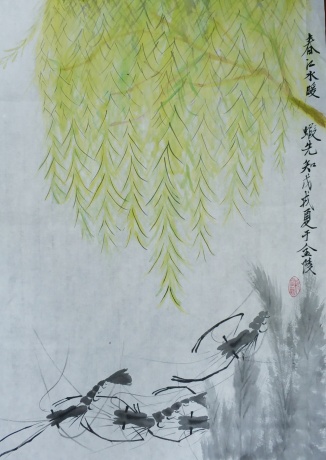 春江水暖 蝦先知戊戌夏于金陵